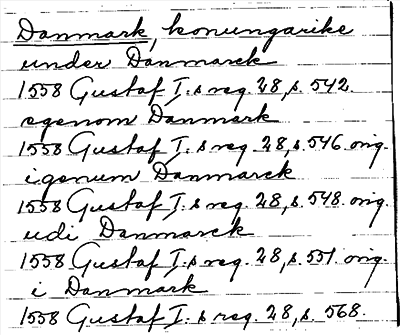 Danmark, konungarike
under Danmarck
1558 Gustaf I:s reg. 28, s. 542.
egenom Danmark
1558 Gustaf I:s reg. 28, s. 546. orig.
igenum Danmarck
1558 Gustaf I:s reg. 28, s. 548. orig.
udi Danmarck
1558 Gustaf I:s reg. 28, s. 551. orig.
i Danmark
1558 Gustaf I:s reg. 28, s. 568.